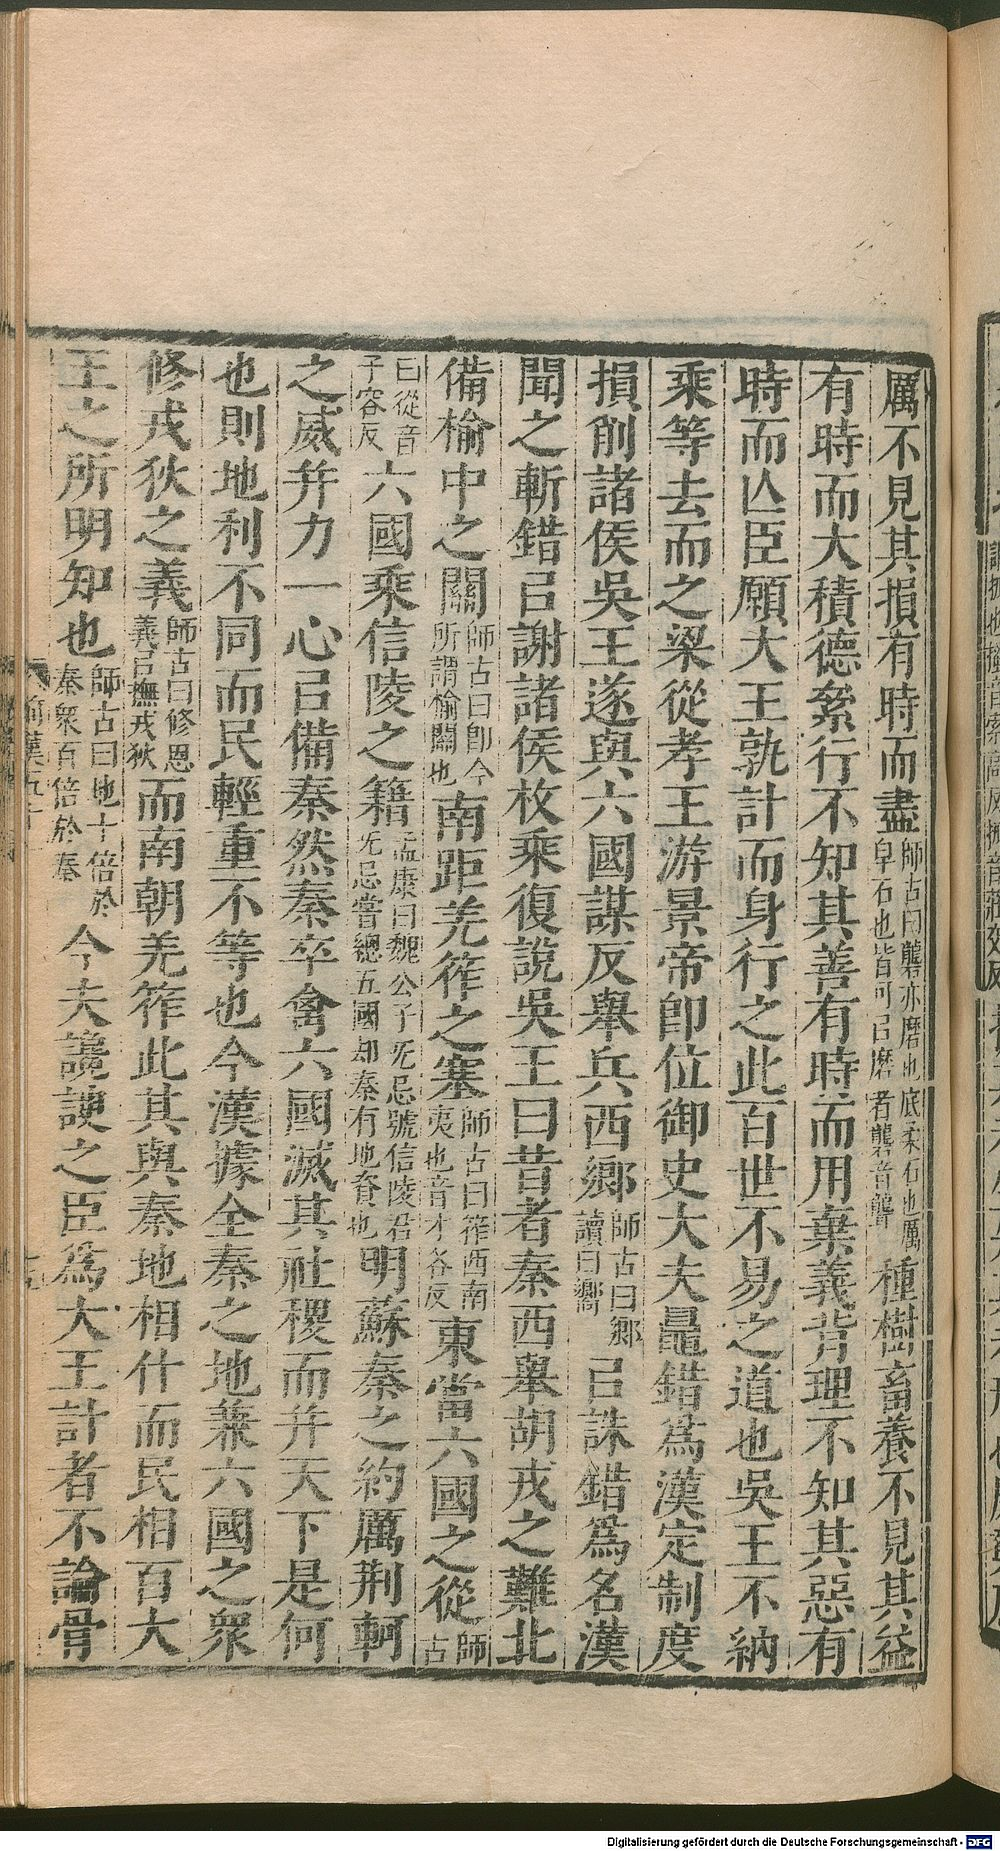 厲不見其損有時而盡師古曰礱亦磨也底柔石也厲皁石也皆可㠯磨者礱音聾種樹畜養不見其益
有時而大積德絫行不知其善有時而用棄義背理不知其惡有
時而亾臣願大王孰計而身行之此百世不易之道也吳王不納
乘等去而之梁從孝王游景帝即位御史大夫鼂錯爲漢定制度
損削諸侯吳王遂與六國謀反舉兵西鄉師古曰鄉讀曰嚮㠯誅錯爲名漢
聞之斬錯㠯謝諸侯枚乘復說吳王曰昔者秦西舉胡戎之難北
備榆中之關師古曰卽今所謂榆關也南距羌筰之塞師古曰筰西南夷也音才各反東當六國之從師古
曰從音子容反六國乘信陵之籍孟康曰魏公子无忌號信陵君无忌嘗總五國却秦有地資也明蘇秦之約厲荆軻
之威并力一心㠯備秦然秦卒禽六國滅其社稷而并天下是何
也則地利不同而民輕重不等也今漢據全秦之地兼六國之衆
修戎狄之義師古曰修恩義㠯撫戎狄而南朝羌筰此其與秦地相什而民相百大
王之所明知也師古曰地十倍於秦衆百倍於秦今夫讒諛之臣爲大王計者不論骨
前漢五十
Digitalisierung gefördert durch die Deutsche Forschungsgemeinschaft - DFG